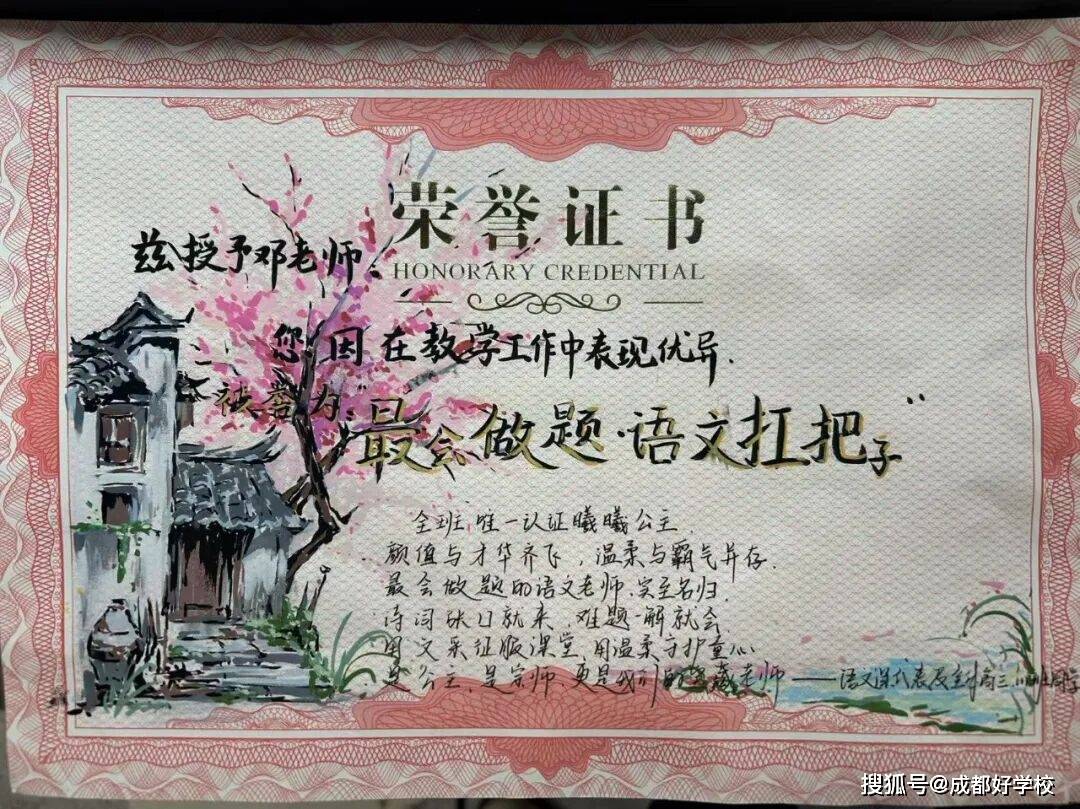 荣誉证书
兹授予邓老师:
HONORARY CREDENTIAL
您因在教学工作中表现优异.
被誉为
"最会做题·语文扛把子"
全班唯一认证曦曦公主
颜值与才华齐飞，温柔与霸气并存.
最会做题的语文老师.实至名归.
诗词张口就来,难题一解就会
用文采征服课堂,用温柔守护童心
是公主,是宗师,更是我们的宝藏老师——语文课代表及全体高三
搜狐号@成都好学校